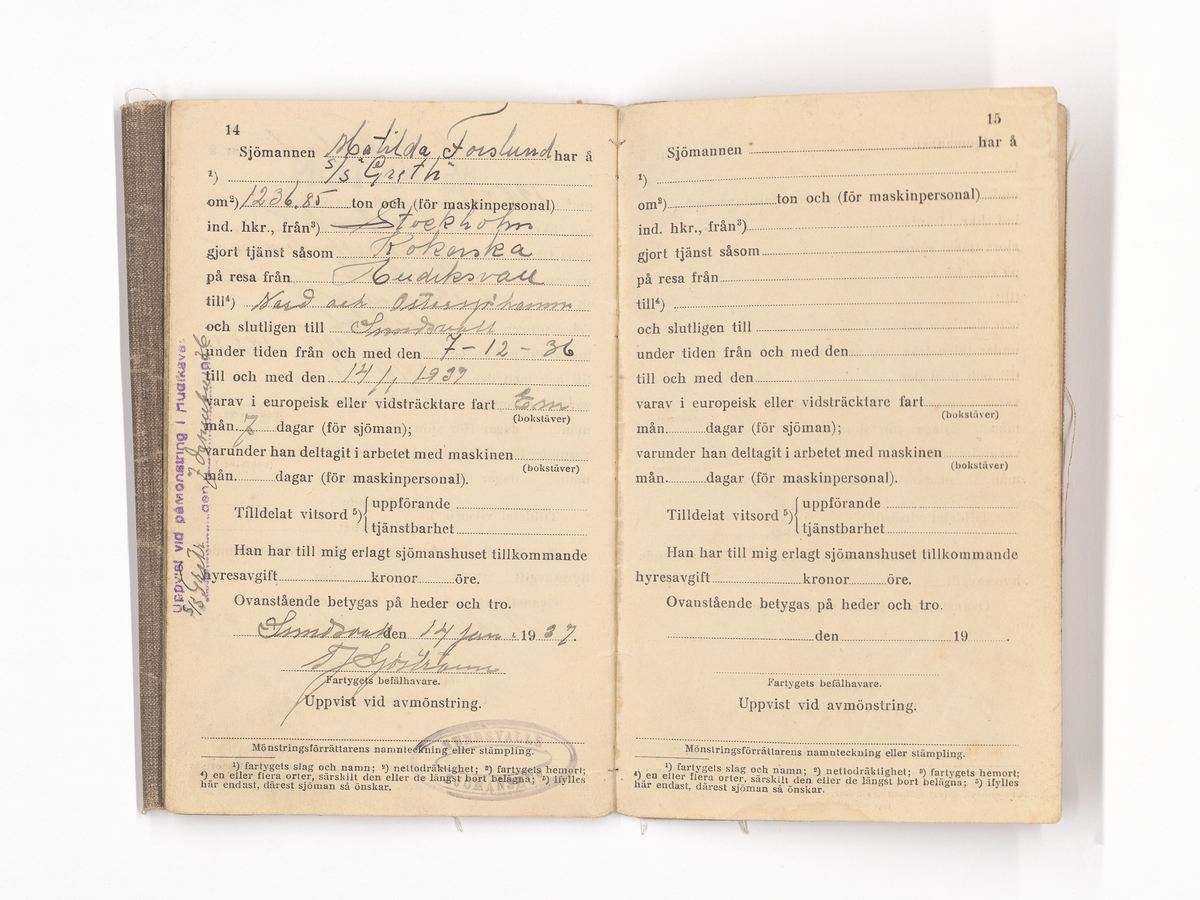 14
Sjömannen Matilda Forslund har å
¹) s/s "Greth"
om²) 1236.85 ton och (för maskinpersonal)
ind. hkr., från³) Stockholm
gjort tjänst såsom Kokerska
på resa från Hudiksvall
till⁴) Nord och Östersjöhamn
och slutligen till Sundsvall
under tiden från och med den 7-12-36
till och med den 14/1 1937
varav i europeisk eller vidsträcktare fart En
(bokstäver)
mån. 7 dagar (för sjöman);
varunder han deltagit i arbetet med maskinen
(bokstäver)
mån. dagar (för maskinpersonal).
Tilldelat vitsord ⁵) { uppförande
tjänstbarhet
Han har till mig erlagt sjömanshuset tillkommande
hyresavgift kronor öre.
Ovanstående betygas på heder och tro.
Sundsvall den 14 jan. 1937.
Fartygets befälhavare.
Uppvist vid avmönstring.
Mönstringsförrättarens namnteckning eller stämpling.
¹) fartygets slag och namn; ²) nettodräktighet; ³) fartygets hemort;
⁴) en eller flera orter, särskilt den eller de längst bort belägna; ⁵) ifylles
här endast, därest sjöman så önskar.
SUNDSVALLS
SJÖMANSHUS
Uppvist vid påmönstring i Hudiksvall
s/s Greth den 7 December 1936
15
Sjömannen har å
¹)
om²) ton och (för maskinpersonal)
ind. hkr., från³)
gjort tjänst såsom
på resa från
till⁴)
och slutligen till
under tiden från och med den
till och med den
varav i europeisk eller vidsträcktare fart
(bokstäver)
mån. dagar (för sjöman);
varunder han deltagit i arbetet med maskinen
(bokstäver)
mån. dagar (för maskinpersonal).
Tilldelat vitsord ⁵) { uppförande
tjänstbarhet
Han har till mig erlagt sjömanshuset tillkommande
hyresavgift kronor öre.
Ovanstående betygas på heder och tro.
den 19 .
Fartygets befälhavare.
Uppvist vid avmönstring.
Mönstringsförrättarens namnteckning eller stämpling.
¹) fartygets slag och namn; ²) nettodräktighet; ³) fartygets hemort;
⁴) en eller flera orter, särskilt den eller de längst bort belägna; ⁵) ifylles
här endast, därest sjöman så önskar.